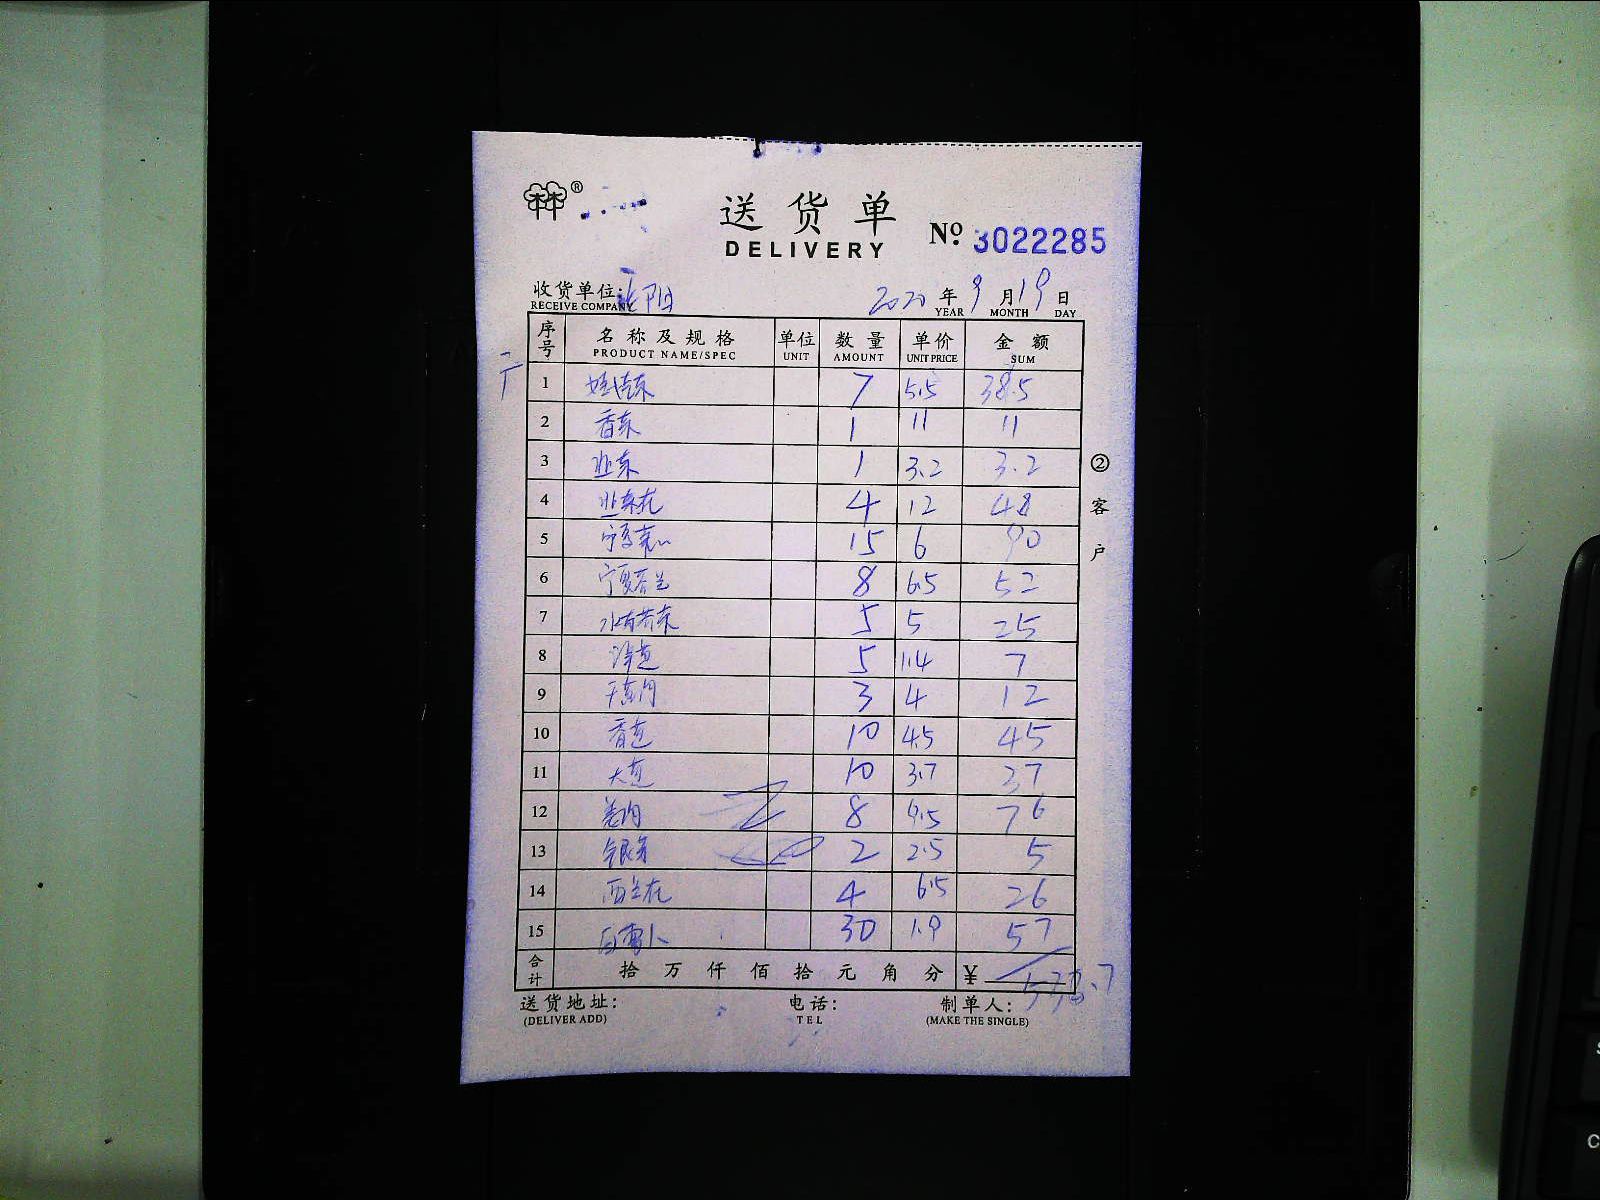 林林®
送货单
DELIVERY
№ 3022285
收货单位: 阳 2020 年 9 月 19 日
RECEIVE COMPANY YEAR MONTH DAY
序号 名称及规格 单位 数量 单价 金额
PRODUCT NAME/SPEC UNIT AMOUNT UNIT PRICE SUM
1 娃娃菜 7 5.5 38.5
2 香菜 1 11 11
3 韭菜 1 3.2 3.2
4 韭菜花 4 12 48
5 宁夏菜心 15 6 90
6 宁夏芥兰 8 6.5 52
7 水东芥菜 5 5 25
8 洋葱 5 1.4 7
9 干葱肉 3 4 12
10 香葱 10 4.5 45
11 大葱 10 3.7 37
12 姜肉 8 9.5 76
13 银芽 2 2.5 5
14 西兰花 4 6.5 26
15 白萝卜 30 1.9 57
合计 拾 万 仟 佰 拾 元 角 分 ¥
送货地址: 电话: 制单人:
(DELIVER ADD) TEL (MAKE THE SINGLE)
②客户